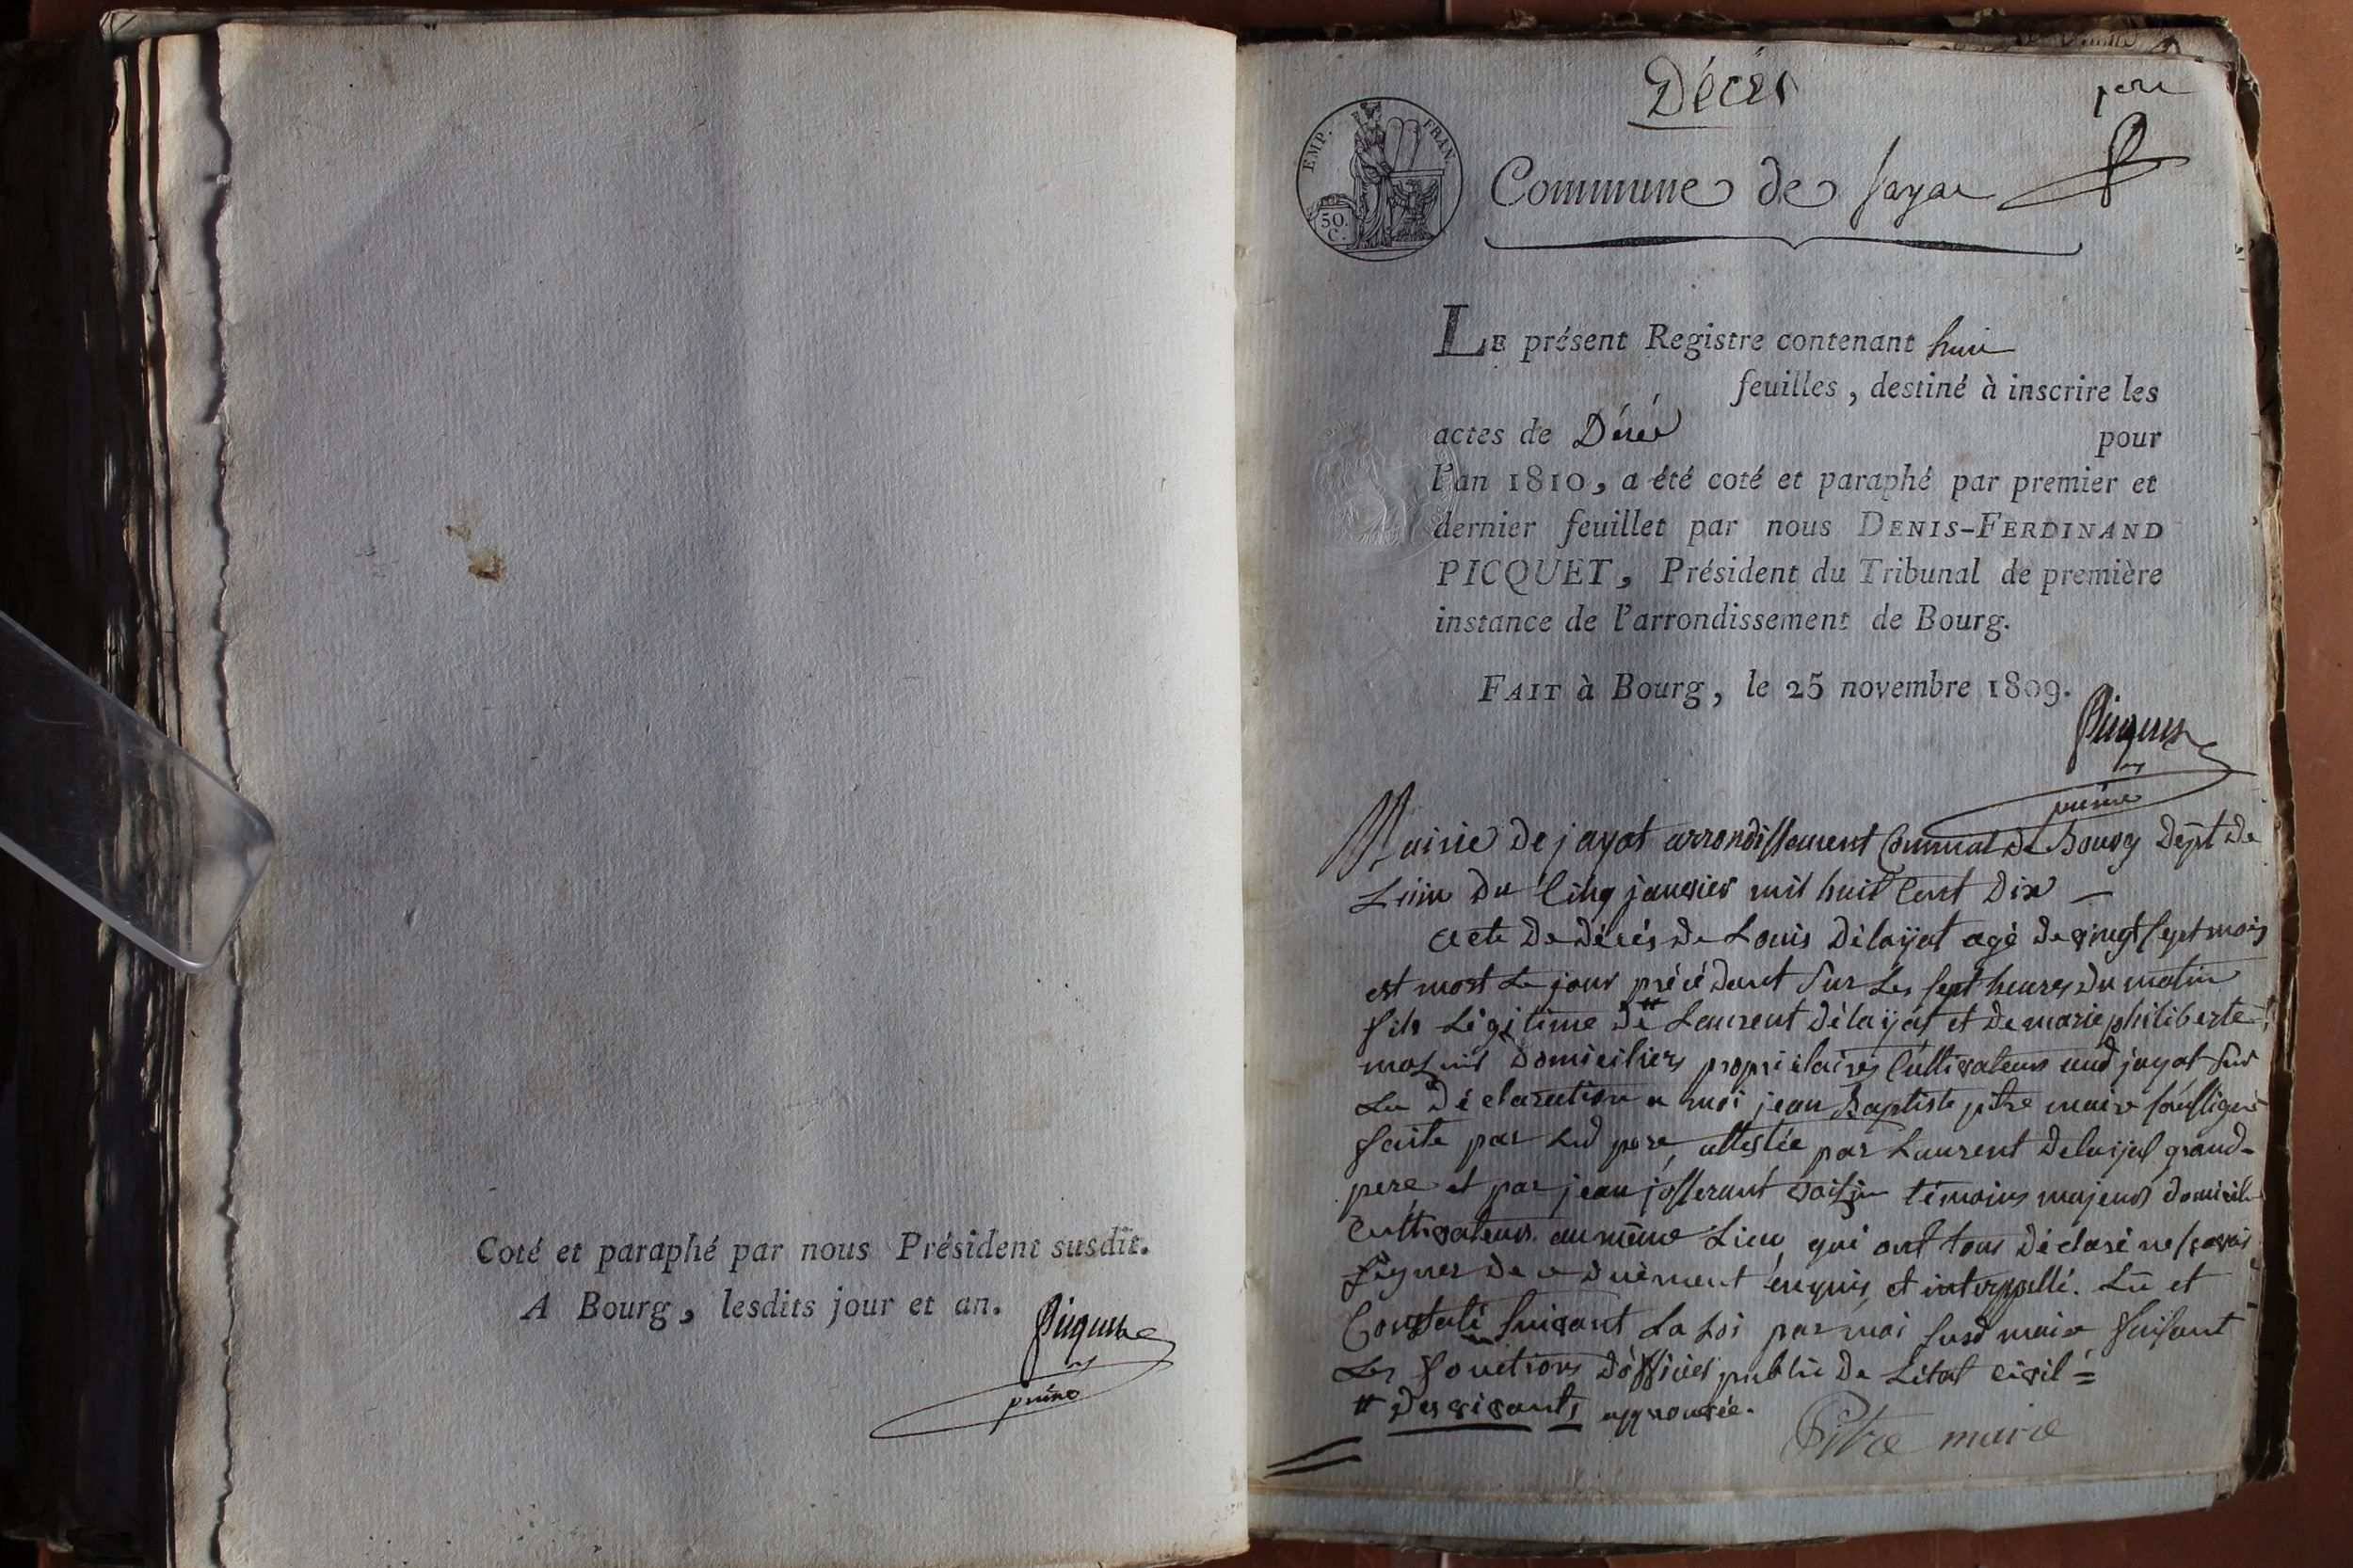 Coté et paraphé par nous Président susdit.
A Bourg, lesdits jour et an.
Picquet
Décès
EMP. FRAN.
50 C.
Commune de Jayat
LE présent Registre contenant huit
feuilles, destiné à inscrire les
actes de Décès pour
l'an 1810, a été coté et paraphé par premier et
dernier feuillet par nous DENIS-FERDINAND
PICQUET, Président du Tribunal de première
instance de l'arrondissement de Bourg.
FAIT à Bourg, le 25 novembre 1809.
Picquet
Mairie de jayat arrondissement Communal de Bourg dept de
Lain du Cinq janvier mil huit Cent dix
acte de décés de Louis délaÿat agé de vingt sept mois
est mort le jour précédant sur les sept heures du matin
fils Légitime de # Laurent délaÿat et de marie philiberte
domiciliers propriétaires Cultivateurs aud jayat sur
La déclaration a moi jean Baptiste pitre maire soussigné
faite par Led pere, attestée par Laurent delaijat grand-
pere et par jean josserant voisin témoins majeurs domicil
Cultivateurs au même Lieu, qui ont tous déclaré ne scavoir
signer de ce duëment enquis et interppellé. Lu et
Constaté suivant La Loi par moi susd maire faisant
Les fonctions d'officier public de Létat civil =
# des vivants approuvée.
Pitre maire